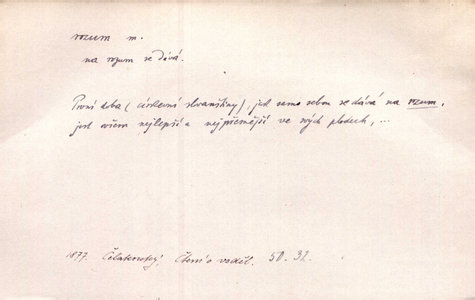 rozum m.
na rozum se dává.
První doba (církevní slovanštiny), jak samo sebou se dává na rozum,
jest ovšem nejlepší a nejpřesnější ve svých plodech, ...
1877. Čelakovský, Čtení o vzděl. 50. 32.